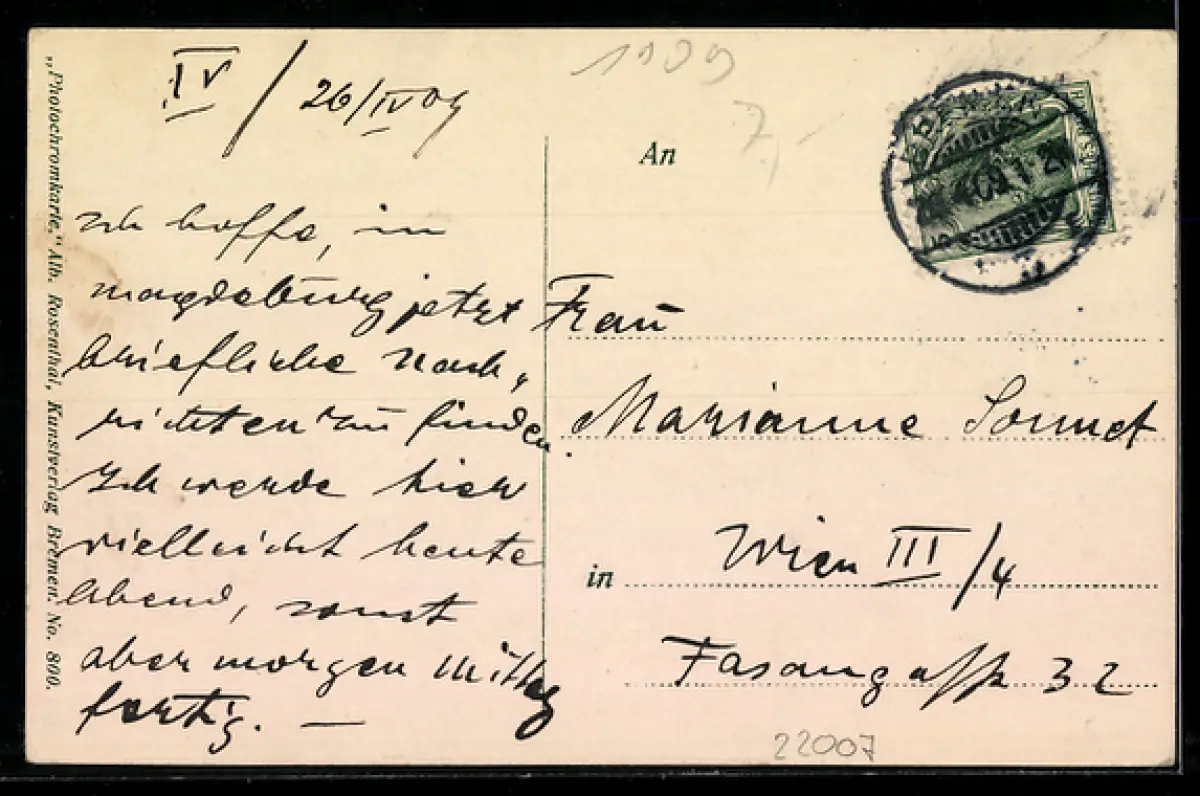 IV / 26/IV 09
Ich hoffe, in
Magdeburg jetzt
briefliche Nach,
richten zu finden.
Ich werde hier
vielleicht heute
Abend, sonst
aber morgen Mittag
fertig. —
1909
7,-
An
Frau
Marianne Sonnet
in Wien III/4
Fasangasse 32
22007
„Photochromkarte," Alb. Rosenthal, Kunstverlag Bremen. No. 800.